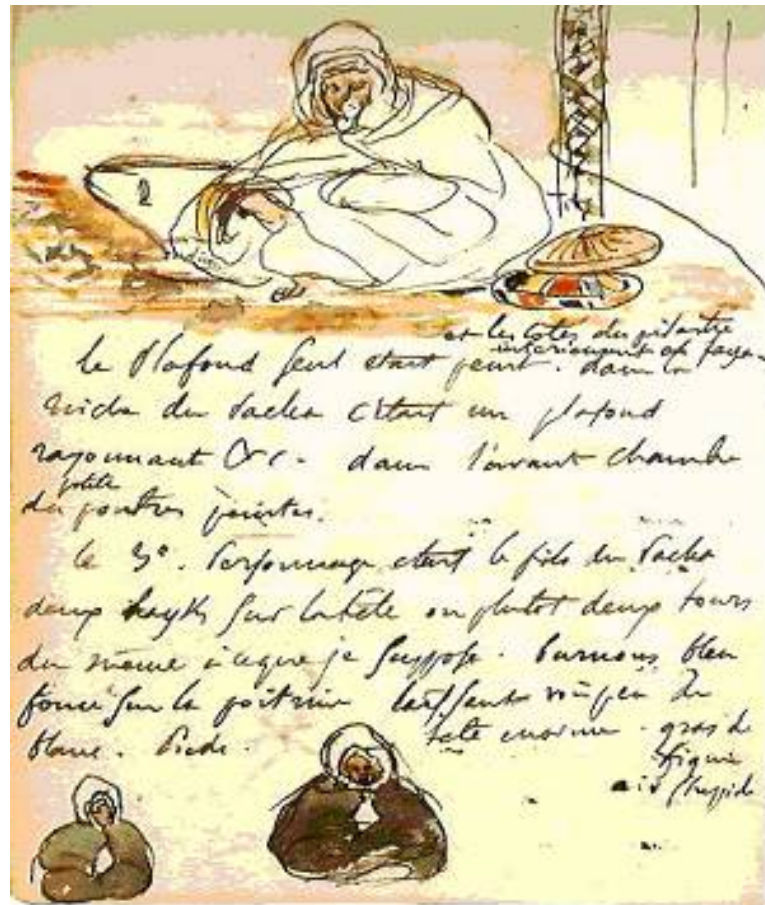 et les cotés du pilastre
interieurement en façon
le Plafond seul etait peint. dans la
niche du Pacha c'etait un plafond
rayonnant &c. dans l'avant chambre
petite
des poutres peintes.
le 3e. Personnage etait le fils du Pacha
deux hayks sur la tête ou plutot deux tours
du même à ce que je suppose. burnous bleu
foncé sur la poitrine laissant voir peu de
blanc. Pieds. tete enorme. gras de
figure
air stupide